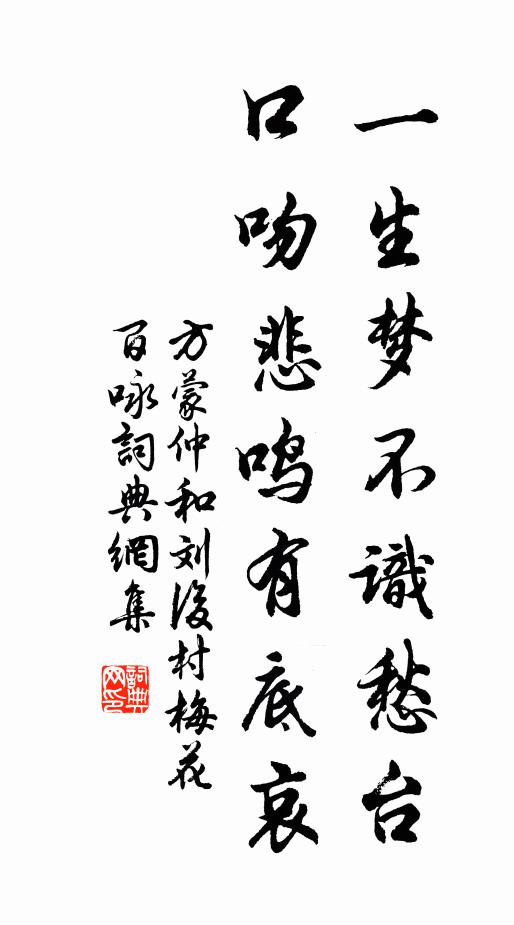 一生梦不識愁台
口吻悲鸣有底哀
方蒙仲和刘後村梅花
百咏詞典網集
詞典网印